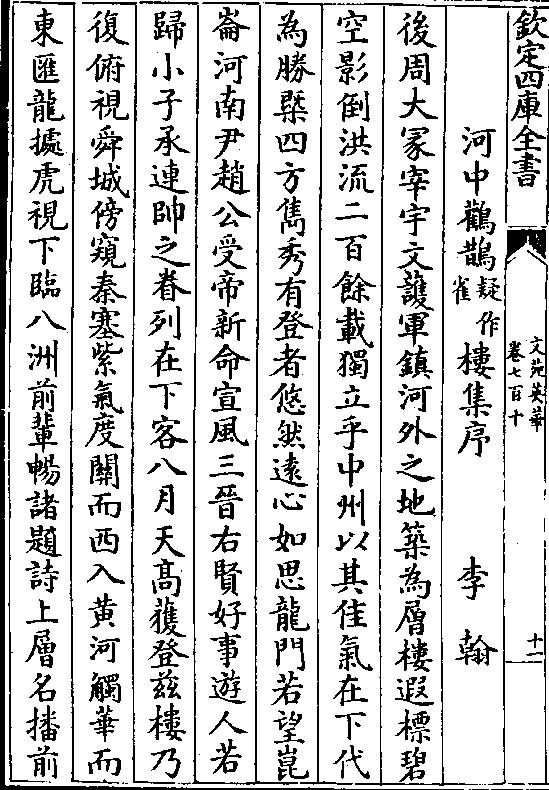 欽定四庫全書
文苑英華
卷七百十
十一
河中鸛鵲疑作雀樓集序 李翰
後周大冢宰宇文護軍鎮河外之地築為層樓遐標碧
空影倒洪流二百餘載獨立乎中州以其佳氣在下代
為勝槩四方雋秀有登者悠然遠心如思龍門若望崑
崙河南尹趙公受帝新命宣風三晉右賢好事遊人若
歸小子承連帥之眷列在下客八月天高獲登茲樓乃
復俯視舜城傍窺秦塞紫氣度關而西入黃河觸華而
東匯龍據虎視下臨八洲前輩暢諸題詩上層名播前